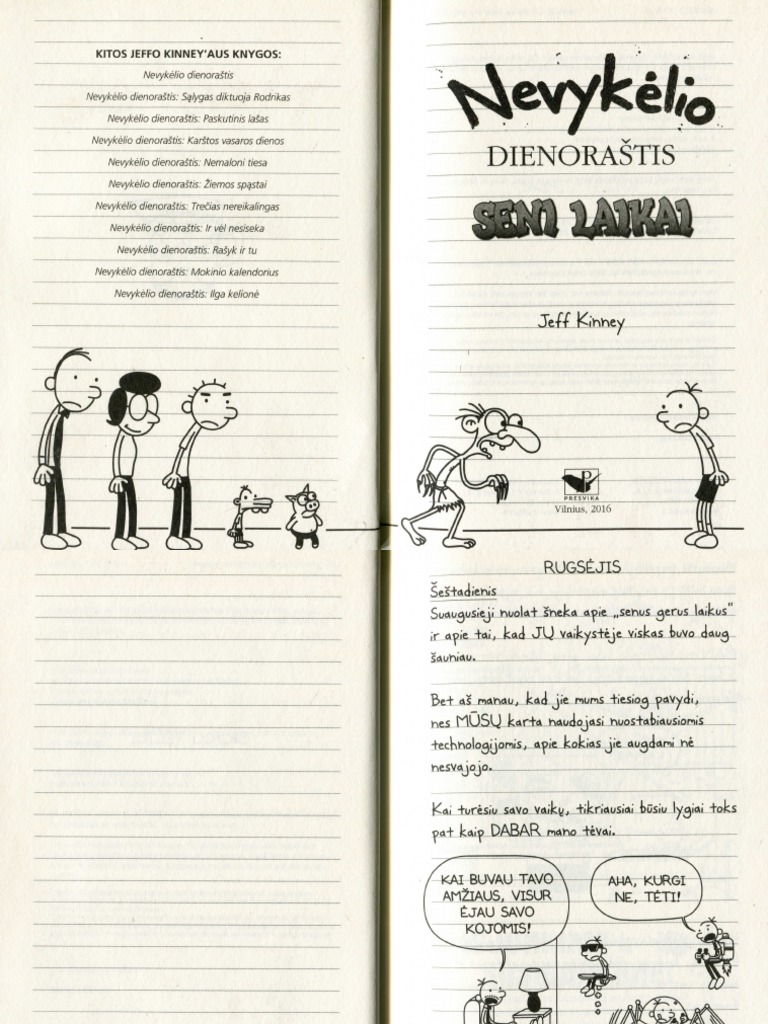 KITOS JEFFO KINNEY'AUS KNYGOS:
Nevykėlio dienoraštis
Nevykėlio dienoraštis: Sąlygas diktuoja Rodrikas
Nevykėlio dienoraštis: Paskutinis lašas
Nevykėlio dienoraštis: Karštos vasaros dienos
Nevykėlio dienoraštis: Nemaloni tiesa
Nevykėlio dienoraštis: Žiemos spąstai
Nevykėlio dienoraštis: Trečias nereikalingas
Nevykėlio dienoraštis: Ir vėl nesiseka
Nevykėlio dienoraštis: Rašyk ir tu
Nevykėlio dienoraštis: Mokinio kalendorius
Nevykėlio dienoraštis: Ilga kelionė
Nevykėlio
DIENORAŠTIS
SENI LAIKAI
Jeff Kinney
P
PRESVIKA
Vilnius, 2016
RUGSĖJIS
Šeštadienis
Suaugusieji nuolat šneka apie „senus gerus laikus"
ir apie tai, kad JŲ vaikystėje viskas buvo daug
šauniau.
Bet aš manau, kad jie mums tiesiog pavydi,
nes MŪSŲ karta naudojasi nuostabiausiomis
technologijomis, apie kokias jie augdami nė
nesvajojo.
Kai turėsiu savo vaikų, tikriausiai būsiu lygiai toks
pat kaip DABAR mano tėvai.
KAI BUVAU TAVO
AMŽIAUS, VISUR
ĖJAU SAVO
KOJOMIS!
AHA, KURGI
NE, TĖTI!